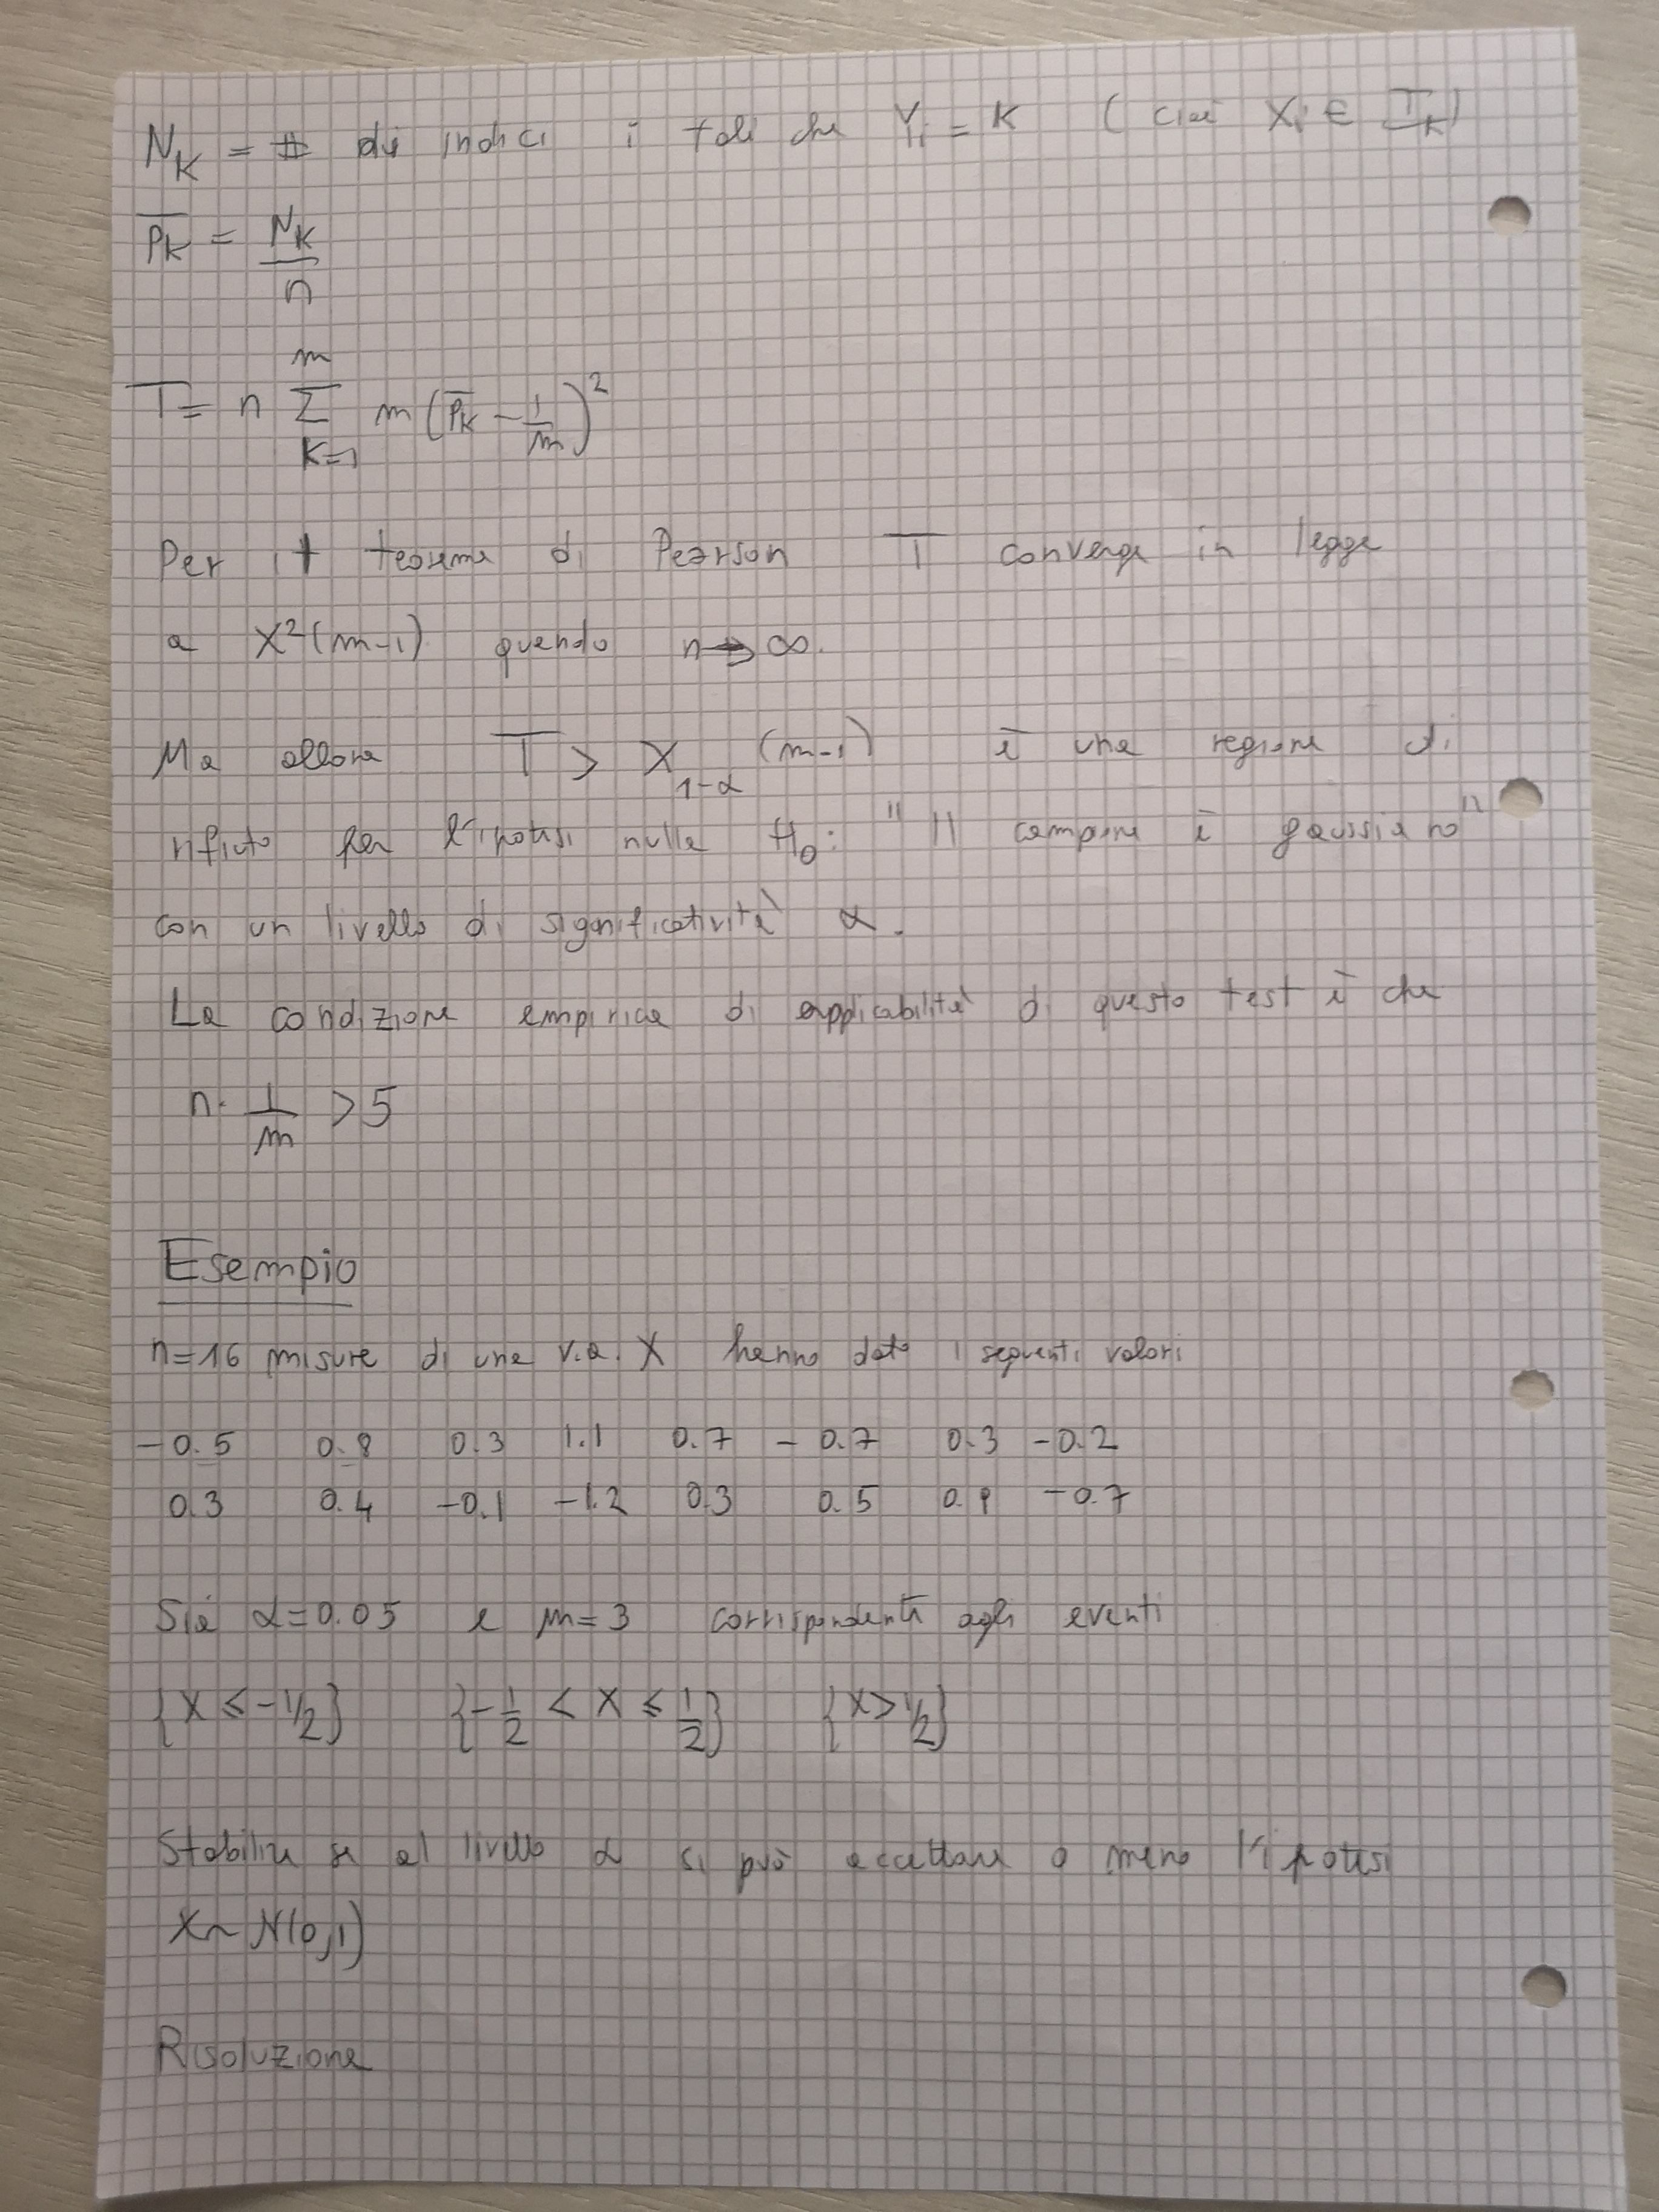 N_K = # di indici i tali che Y_i = K ( cioè X_i ∈ I_K )
\overline{P_K} = N_K / n
T = n \sum_{K=1}^{m} m ( \overline{P_K} - 1/m )^2
Per il teorema di Pearson T converge in legge
a X^2(m-1) quando n → ∞.
Ma allora T > X_{1-α} (m-1) è una regione di
rifiuto per l'ipotesi nulla H_0: " Il campione è gaussiano "
con un livello di significatività α.
La condizione empirica di applicabilità di questo test è che
n · 1/m > 5
Esempio
n=16 misure di una v.a. X hanno dato i seguenti valori
-0.5 0.8 0.3 1.1 0.7 -0.7 0.3 -0.2
0.3 0.4 -0.1 -1.2 0.3 0.5 -0.7
Sia α=0.05 e m=3 corrispondenti agli eventi
{X ≤ -1/2} {-1/2 < X ≤ 1/2} {X > 1/2}
Stabilire se al livello α si può accettare o meno l'ipotesi
X ~ N(0,1)
Risoluzione